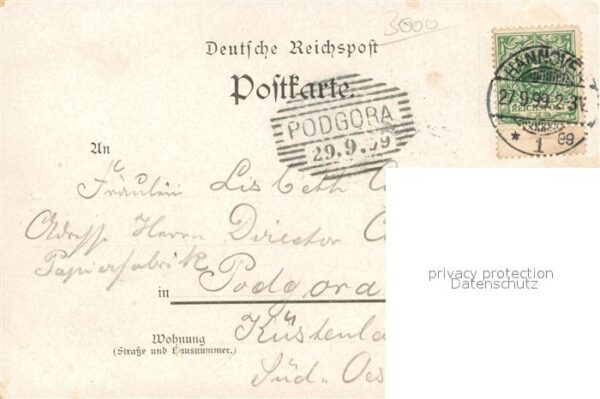 3000
Deutsche Reichspost
Postkarte.
HANNOVER
27.9.99.2-3
* 1
PODGORA
29.9.99
An
Fräulein Lisbeth
Adresse Herrn Director
Papierfabrik
in Podgora
Wohnung
(Straße und Hausnummer.)
Küstenla
Süd-Oes
privacy protection
Datenschutz